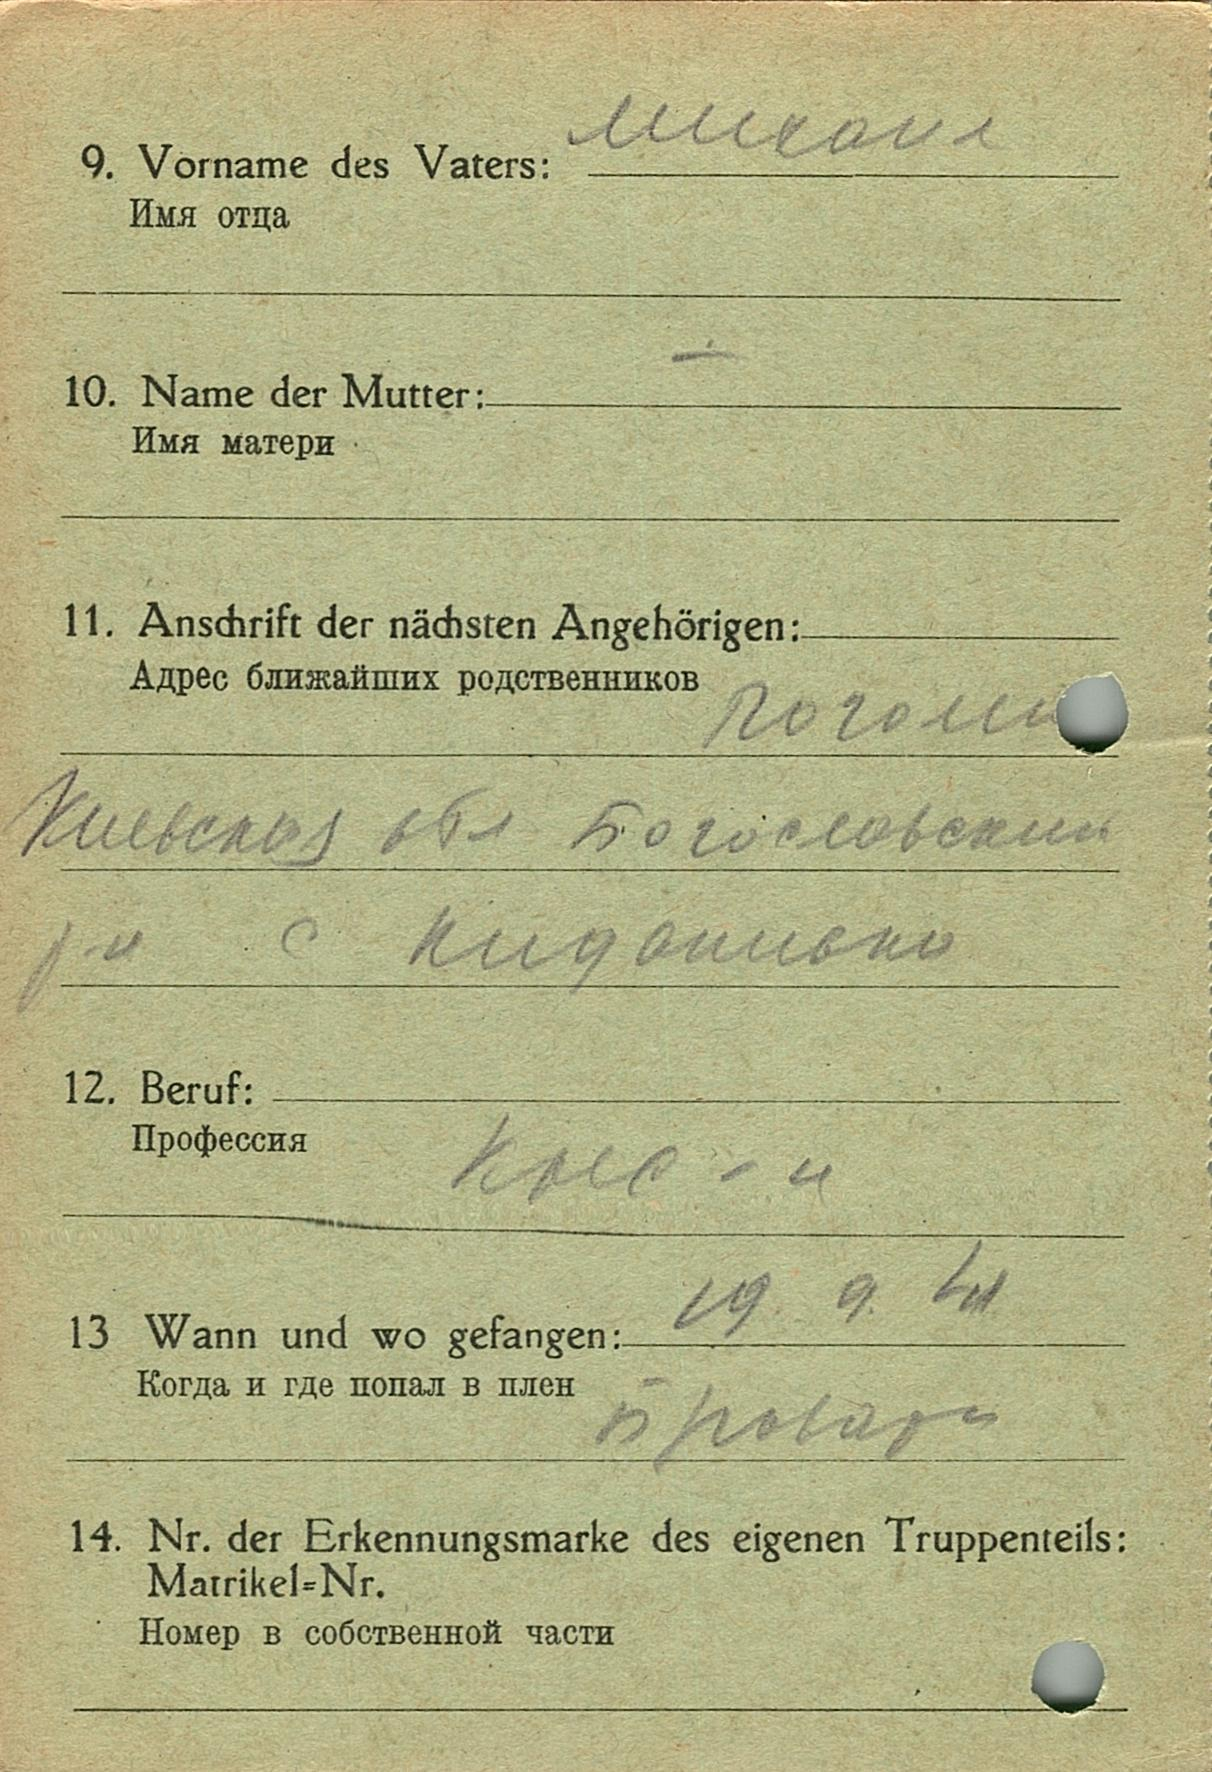 9. Vorname des Vaters: Михаил
Имя отца
10. Name der Mutter: —
Имя матери
11. Anschrift der nächsten Angehörigen:
Адрес ближайших родственников
Киевская обл Богословский
р-н с
12. Beruf:
Профессия
Крес-н
13 Wann und wo gefangen: 19. 9. 41
Когда и где попал в плен
14. Nr. der Erkennungsmarke des eigenen Truppenteils:
Matrikel=Nr.
Номер в собственной части